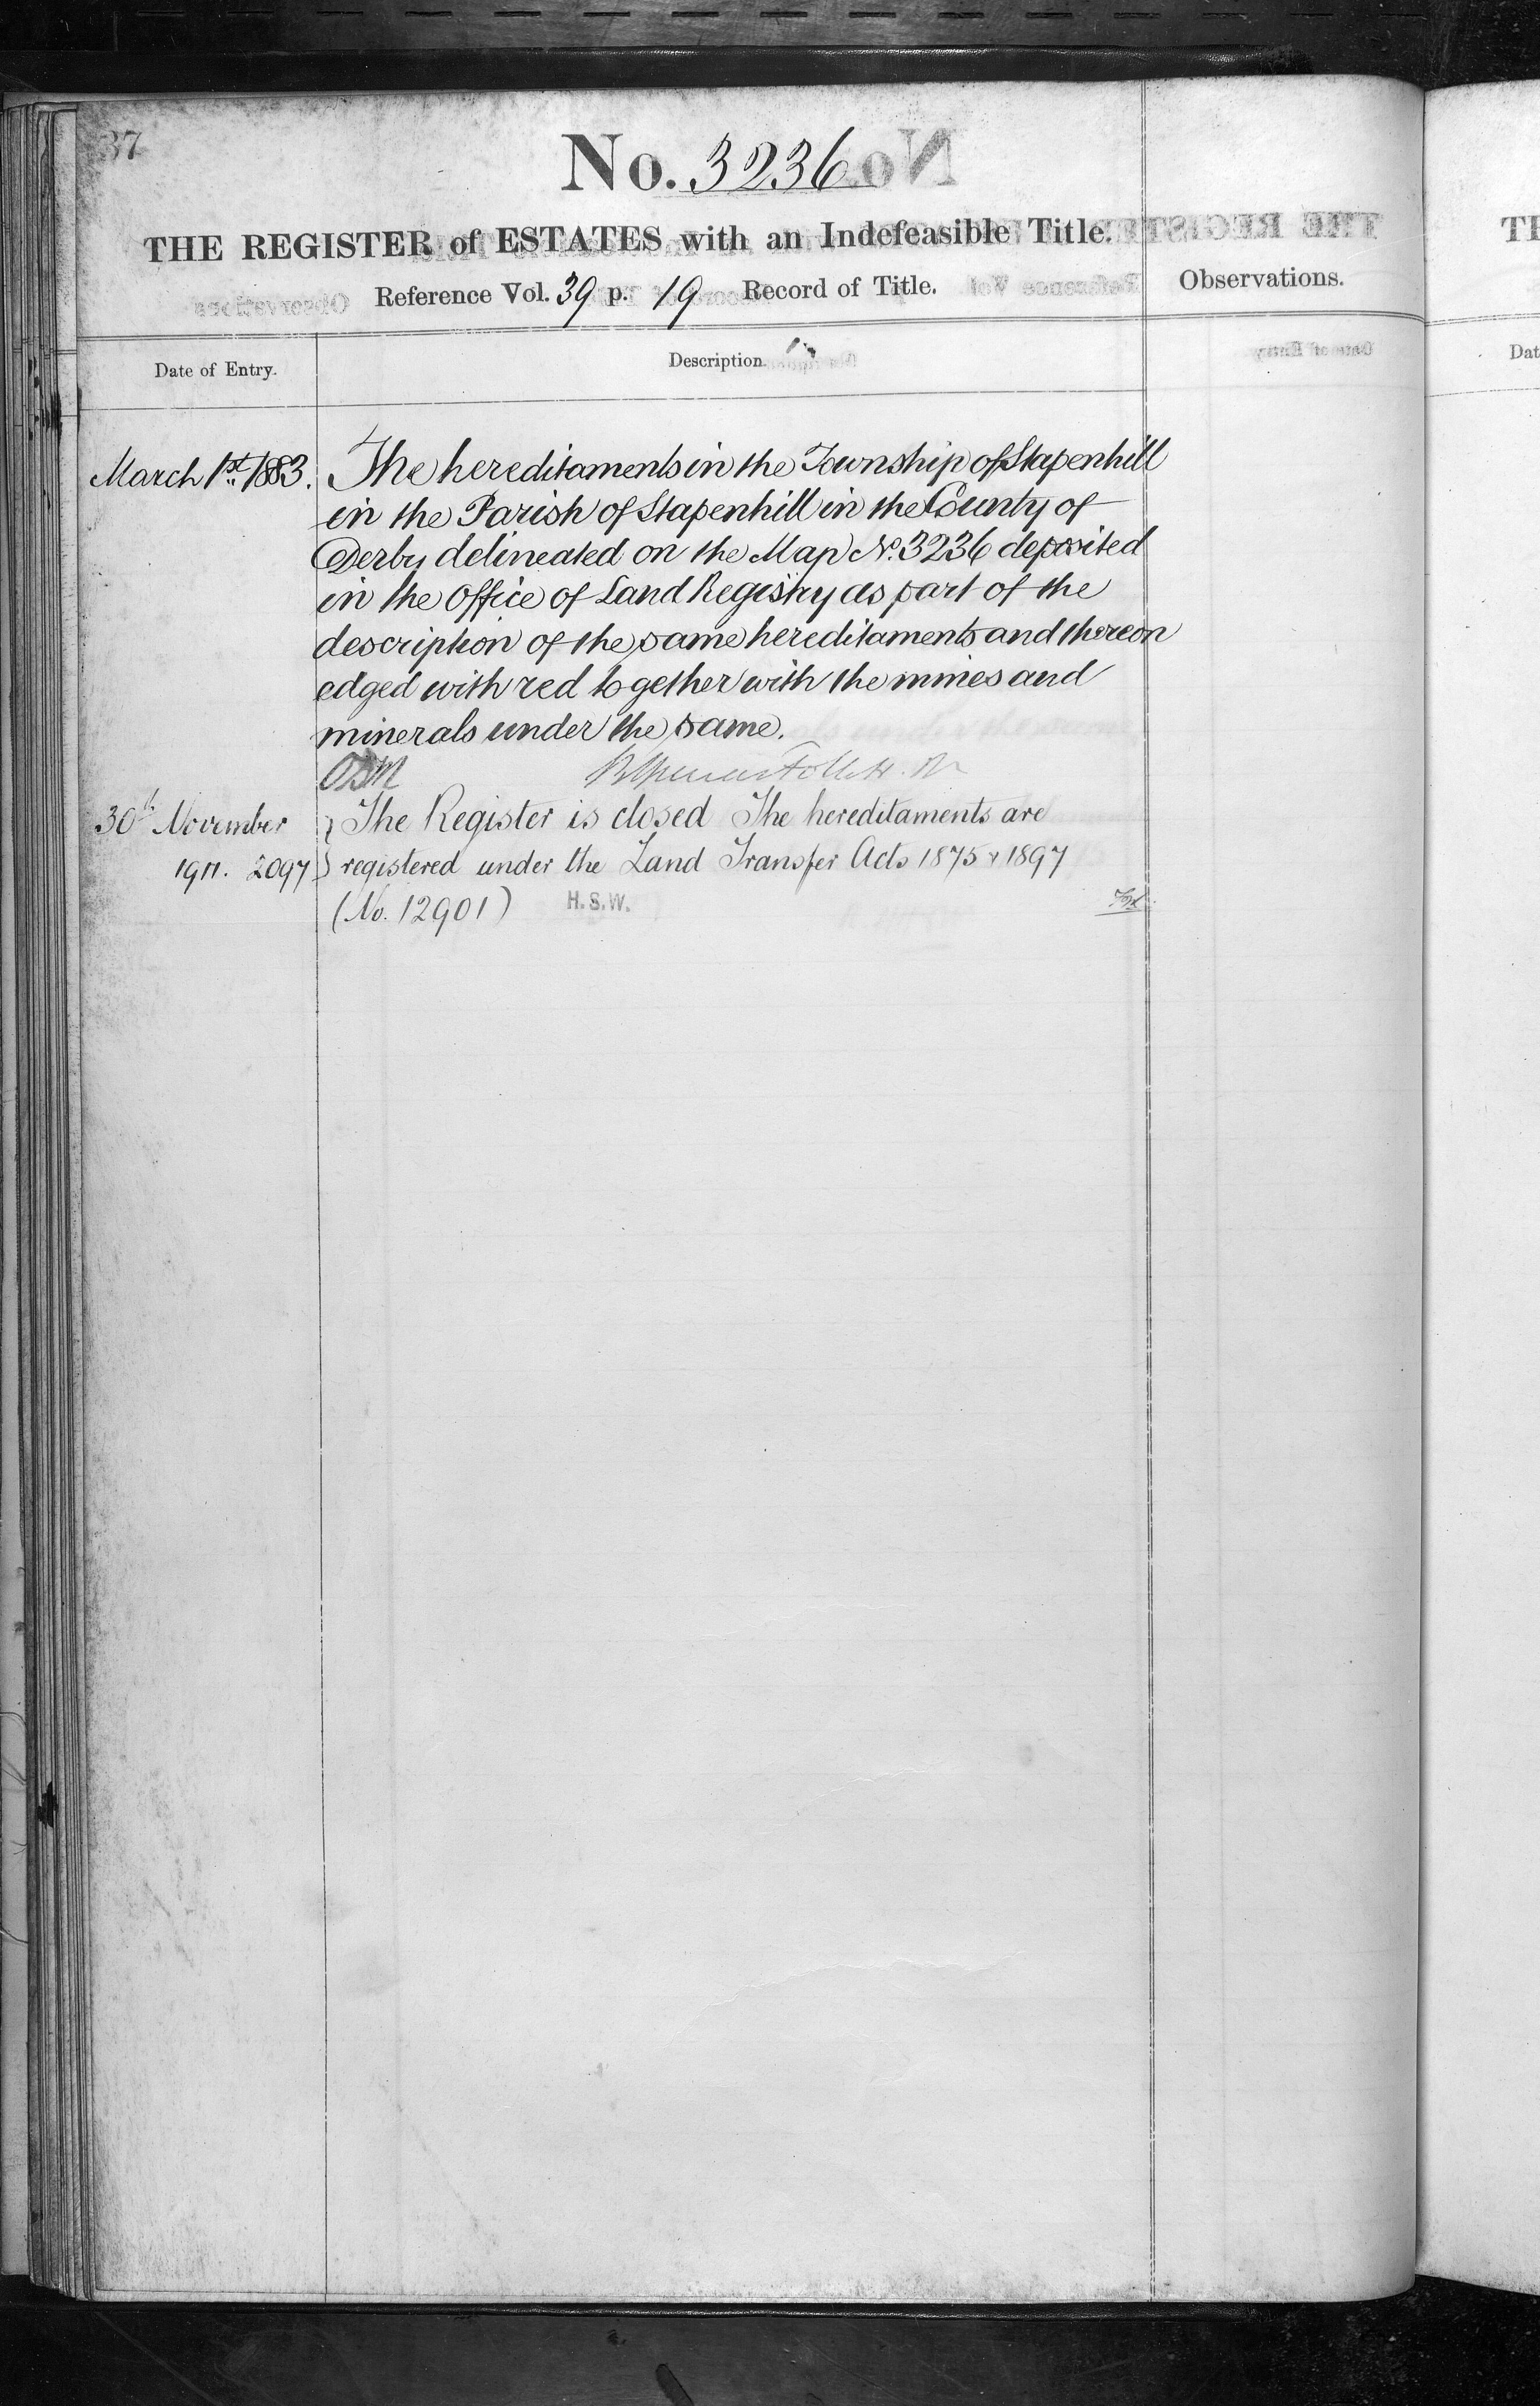 37
No. 3236
THE REGISTER of ESTATES with an Indefeasible Title.
Reference Vol. 39 p. 19 Record of Title.
Observations.
Date of Entry.
Description.
March 1st 1883. The hereditaments in the Township of Stapenhill
in the Parish of Stapenhill in the County of
Derby delineated on the Map No. 3236 deposited
in the Office of Land Registry as part of the
description of the same hereditaments and thereon
edged with red together with the mines and
minerals under the same.
30th November } The Register is closed The hereditaments are
1911. 2097 } registered under the Land Transfer Acts 1875 & 1897
(No. 12901) H.S.W.
TI
Dat